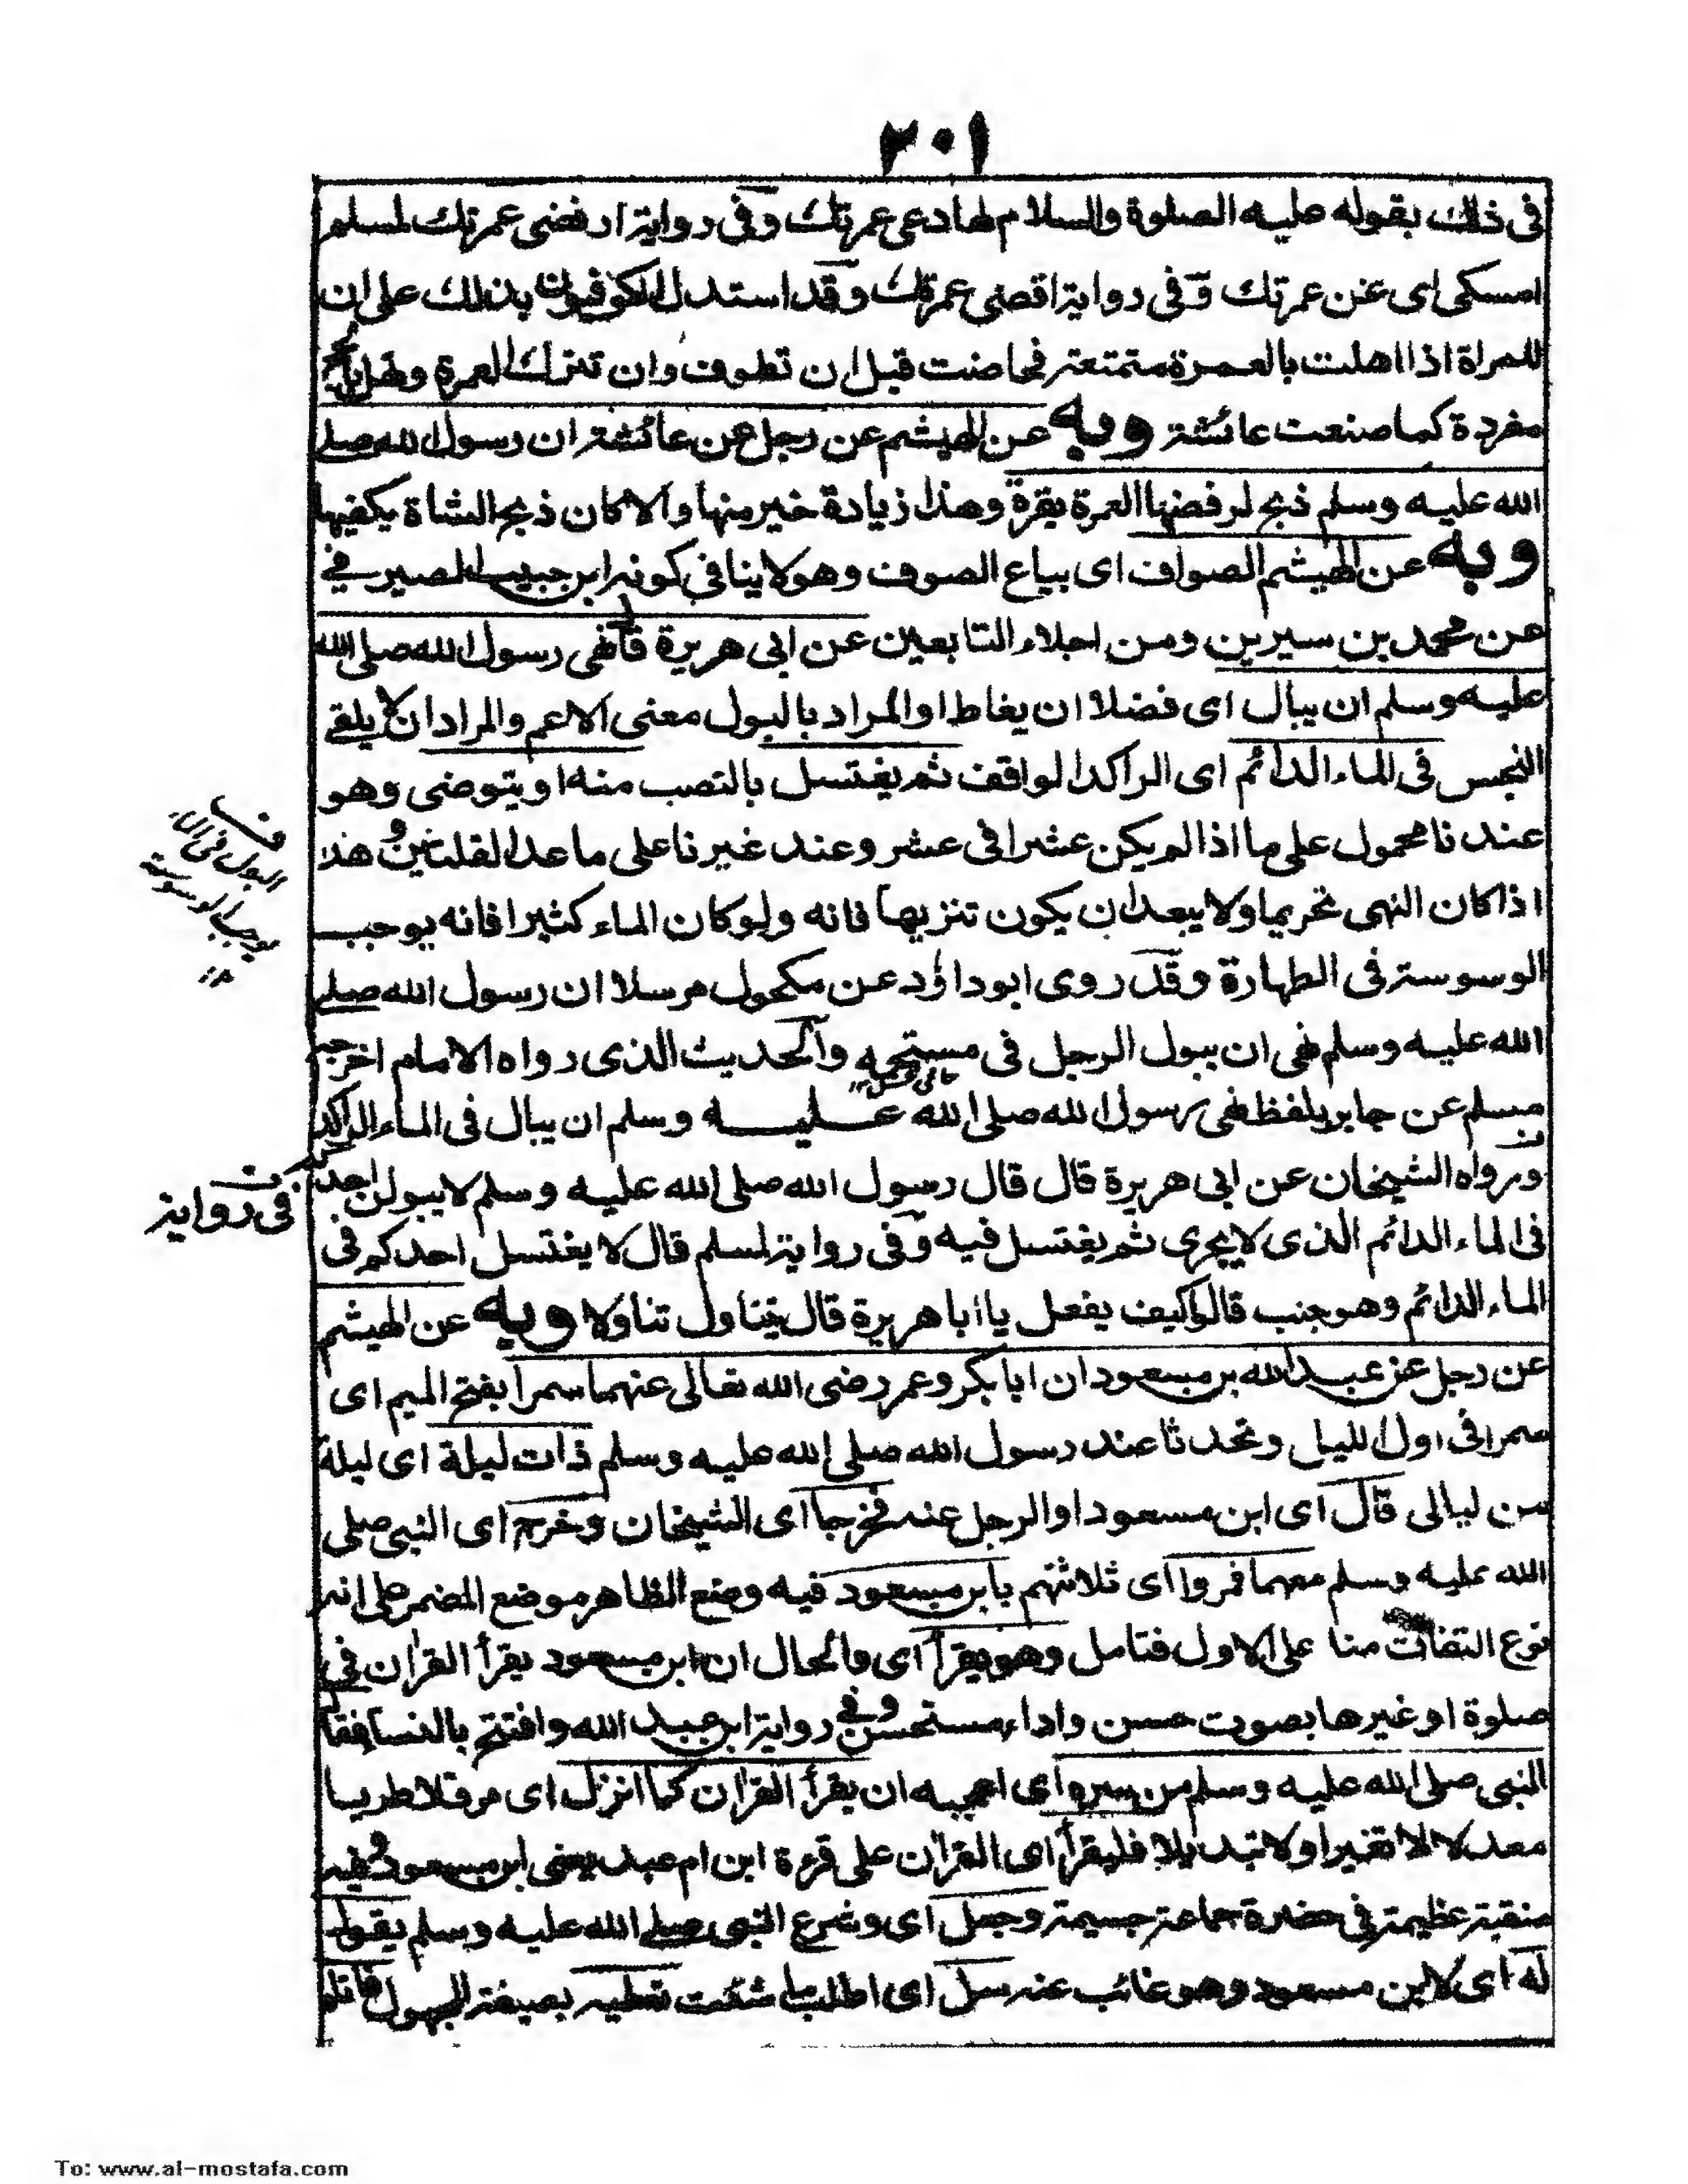 ٢٠١
فى ذلك بقوله عليه الصلوة والسلام لها دعى عمرتك وفى رواية ارفضى عمرتك لمسلم
امسكى اى عن عمرتك وفى رواية اقضى عمرتك وقد استدل الكوفيون بذلك على ان
للمراة اذا اهلت بالعمرة متمتعة فحاضت قبل ان تطوف وان تترك العمرة وتهل بالحج
مفردة كما صنعت عائشة وبه عن الهيثم عن رجل عن عائشة ان رسول الله صلى
الله عليه وسلم ذبح لرفضها العمرة بقرة وهذا زيادة خير منها والا كان ذبح الشاة يكفيها
وبه عن الهيثم الصواف اى بياع الصوف وهو لا ينافى كونه ابن حبيب الصيرفى
عن محمد بن سيرين ومن اجلاء التابعين عن ابى هريرة قال نهى رسول الله صلى الله
عليه وسلم ان يبال اى فضلا ان يغاط او المراد بالبول معنى الاعم والمراد ان لا يلقى
النجس فى الماء الدائم اى الراكد الواقف ثم يغتسل بالنصب منه او يتوضى وهو
عندنا محمول على ما اذا لم يكن عشرا فى عشر وعند غيرنا على ما عدا القلتين وهذا
اذا كان النهى تحريما ولا يبعد ان يكون تنزيها فانه ولو كان الماء كثيرا فانه يوجب
الوسوسة فى الطهارة وقد روى ابوداؤد عن مكحول مرسلا ان رسول الله صلى
الله عليه وسلم نهى ان يبول الرجل فى مستحمه والحديث الذى رواه الامام اخرجه
مسلم عن جابر بلفظ نهى رسول الله صلى الله عليه وسلم ان يبال فى الماء الراكد
ورواه الشيخان عن ابى هريرة قال قال رسول الله صلى الله عليه وسلم لا يبولن احدكم
فى الماء الدائم الذى لا يجرى ثم يغتسل فيه وفى رواية لمسلم قال لا يغتسل احدكم فى
الماء الدائم وهو جنب قالوا كيف يفعل يا ابا هريرة قال يتناول تناولا وبه عن الهيثم
عن رجل عن عبد الله بن مسعود ان ابا بكر وعمر رضى الله تعالى عنهما سمرا بفتح الميم اى
سمرا فى اول الليل وتحدثا عند رسول الله صلى الله عليه وسلم ذات ليلة اى ليلة
من ليالى قال اى ابن مسعود او الرجل عنه فخرجا اى الشيخان وخرج اى النبى صلى
الله عليه وسلم معهما فمروا اى ثلاثتهم بابن مسعود فيه وضع الظاهر موضع المضمر على انه
نوع التفات منا على الاول فتامل وهو يقرأ اى والحال ان ابن مسعود يقرأ القران فى
صلوة او غيرها بصوت حسن واداء مستحسن وفى رواية ابن عبد الله وافتتح بالنسا فقال
النبى صلى الله عليه وسلم من سره اى اعجبه ان يقرأ القران كما انزل اى مرتلا طريبا
معدلا لا تغيرا ولا تبديلا فليقرأ اى القران على قرءة ابن ام عبد يعنى ابن مسعود وفيه
منقبة عظيمة فى حضرة جماعة جسيمة وجعل اى وشرع النبى صلى الله عليه وسلم يقول
له اى لابن مسعود وهو غائب عنه سل اى اطلب ما شئت تعطيه بصيغة المجهول
البول فى الماء
يوجب الوسوسة
١٢
فى رواية
To: www.al-mostafa.com